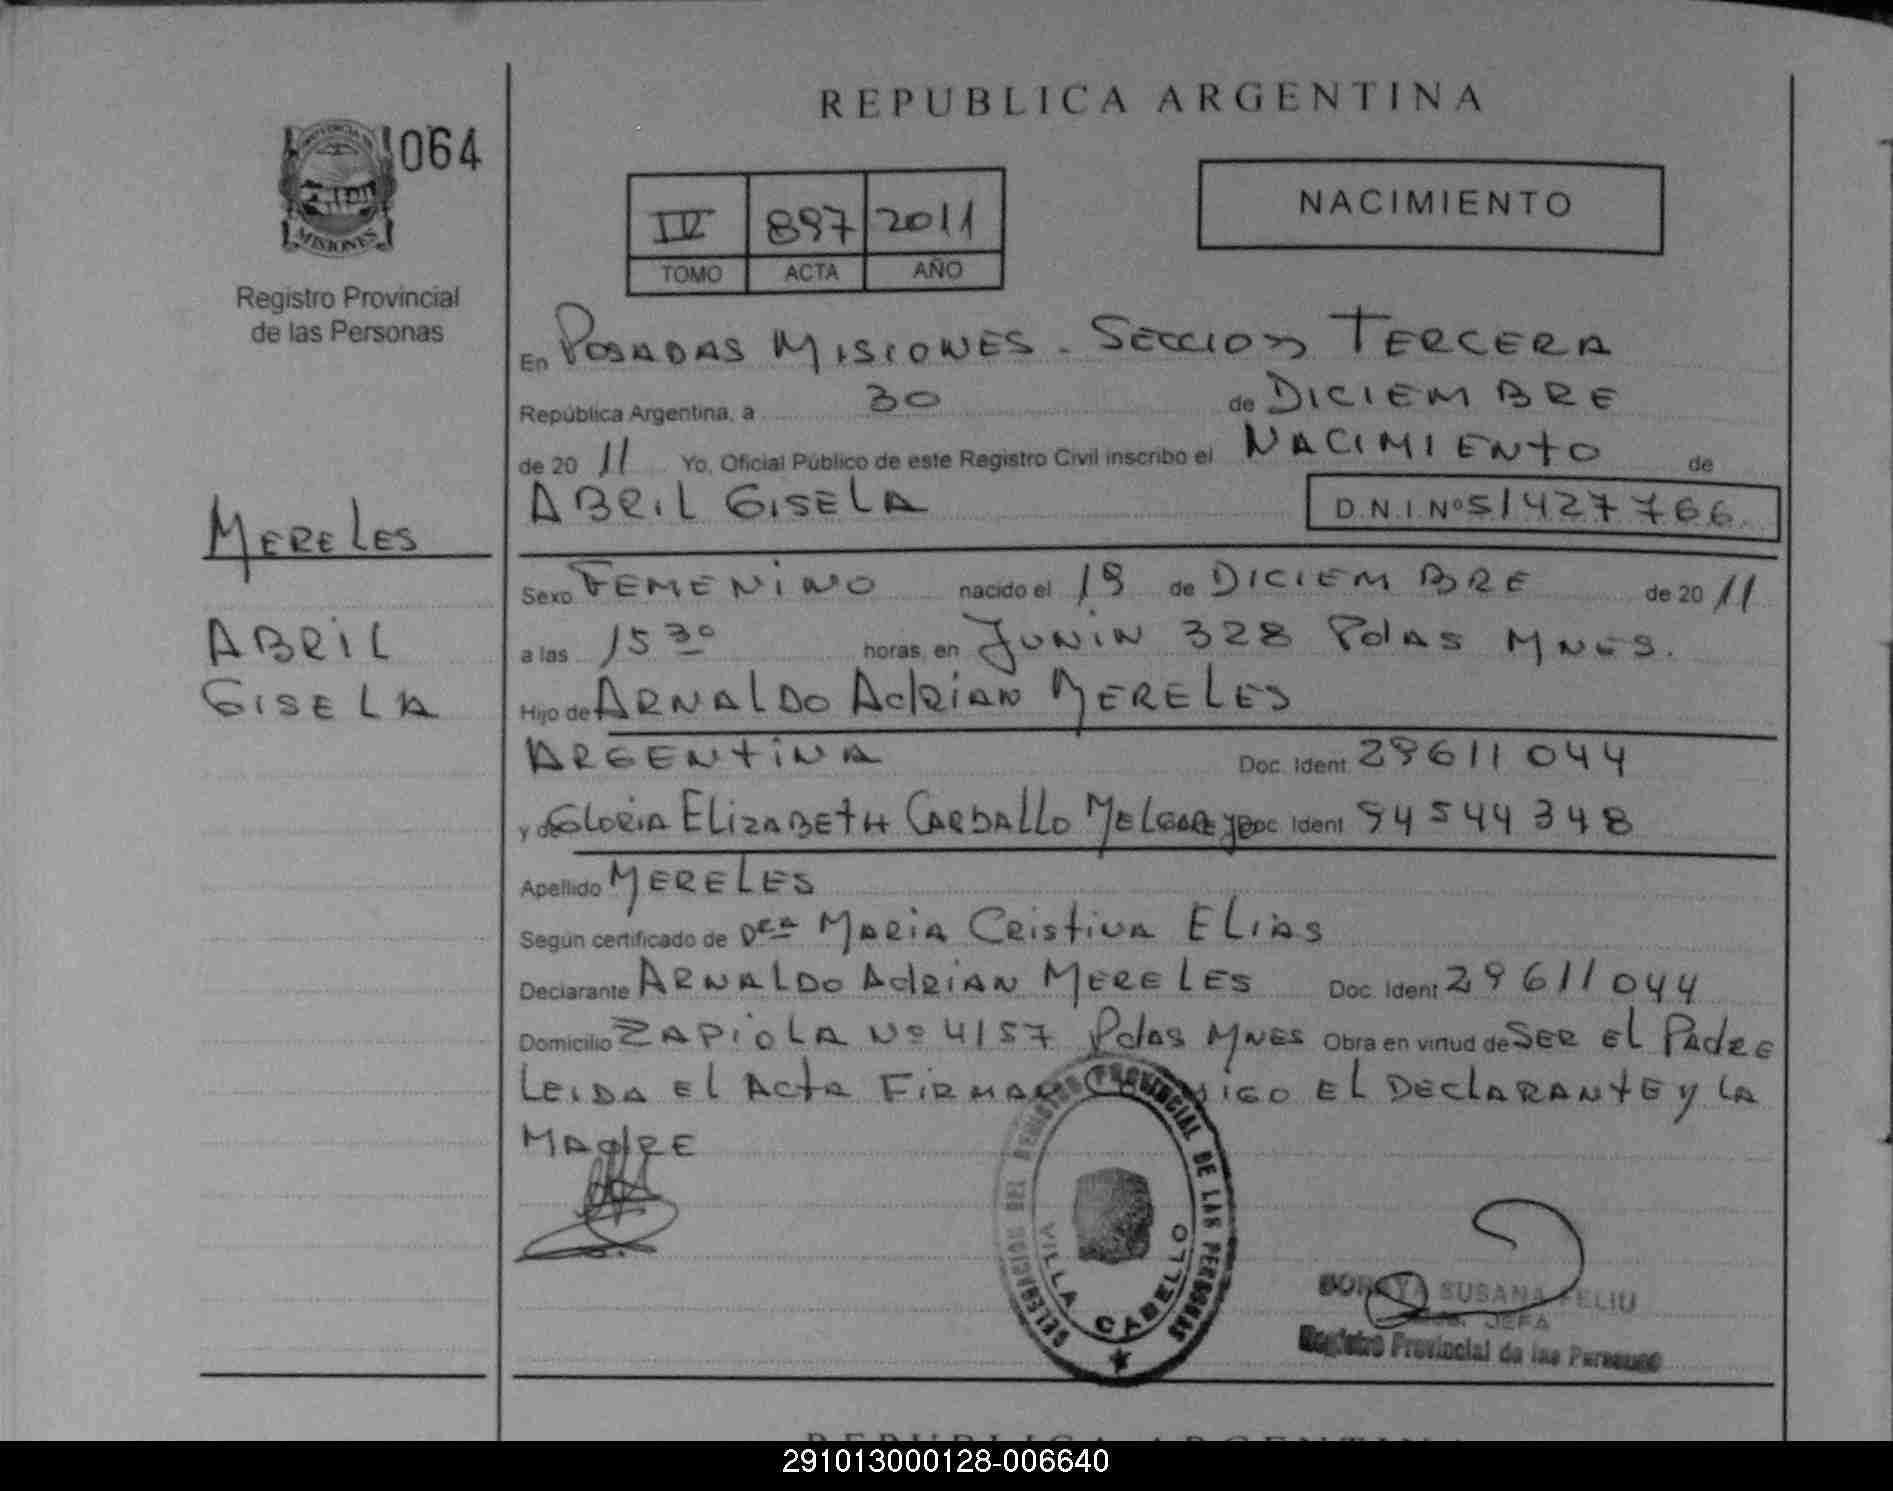 REPUBLICA ARGENTINA
064
MISIONES
Registro Provincial
de las Personas
IV 897 2011
TOMO ACTA AÑO
NACIMIENTO
En POSADAS MISIONES - SECCION TERCERA
República Argentina, a 30 de DICIEMBRE
de 20 11 Yo, Oficial Público de este Registro Civil inscribo el NACIMIENTO de
ABRIL GISELA D.N.I.Nº 51427766
MERELES
ABRIL
GISELA
Sexo FEMENINO nacido el 19 de DICIEMBRE de 20 11
a las 15 30 horas, en JUNIN 328 Pdas MNES.
Hijo de ARNALDO AdRIAN MERELES
ARGENTINA Doc. Ident. 29611044
y de GLORIA ELIZABETH CARBALLO MELGAREJO Doc. Ident. 94544348
Apellido MERELES
Según certificado de Dra MARIA CRISTINA ELIAS
Declarante ARNALDO AdRIAN MERELES Doc. Ident. 29611044
Domicilio ZAPIOLA Nº 4157 Pdas MNES Obra en virtud de SER EL PAdRE
LEIDA EL ACTA FIRMAN CONMIGO EL DECLARANTE y LA
MAdRE
DELEGACION DEL REGISTRO PROVINCIAL DE LAS PERSONAS
VILLA CABELLO
SORAYA SUSANA FELIU
JEFA
Registro Provincial de las Personas
REPUBLICA ARGENTINA
291013000128-006640